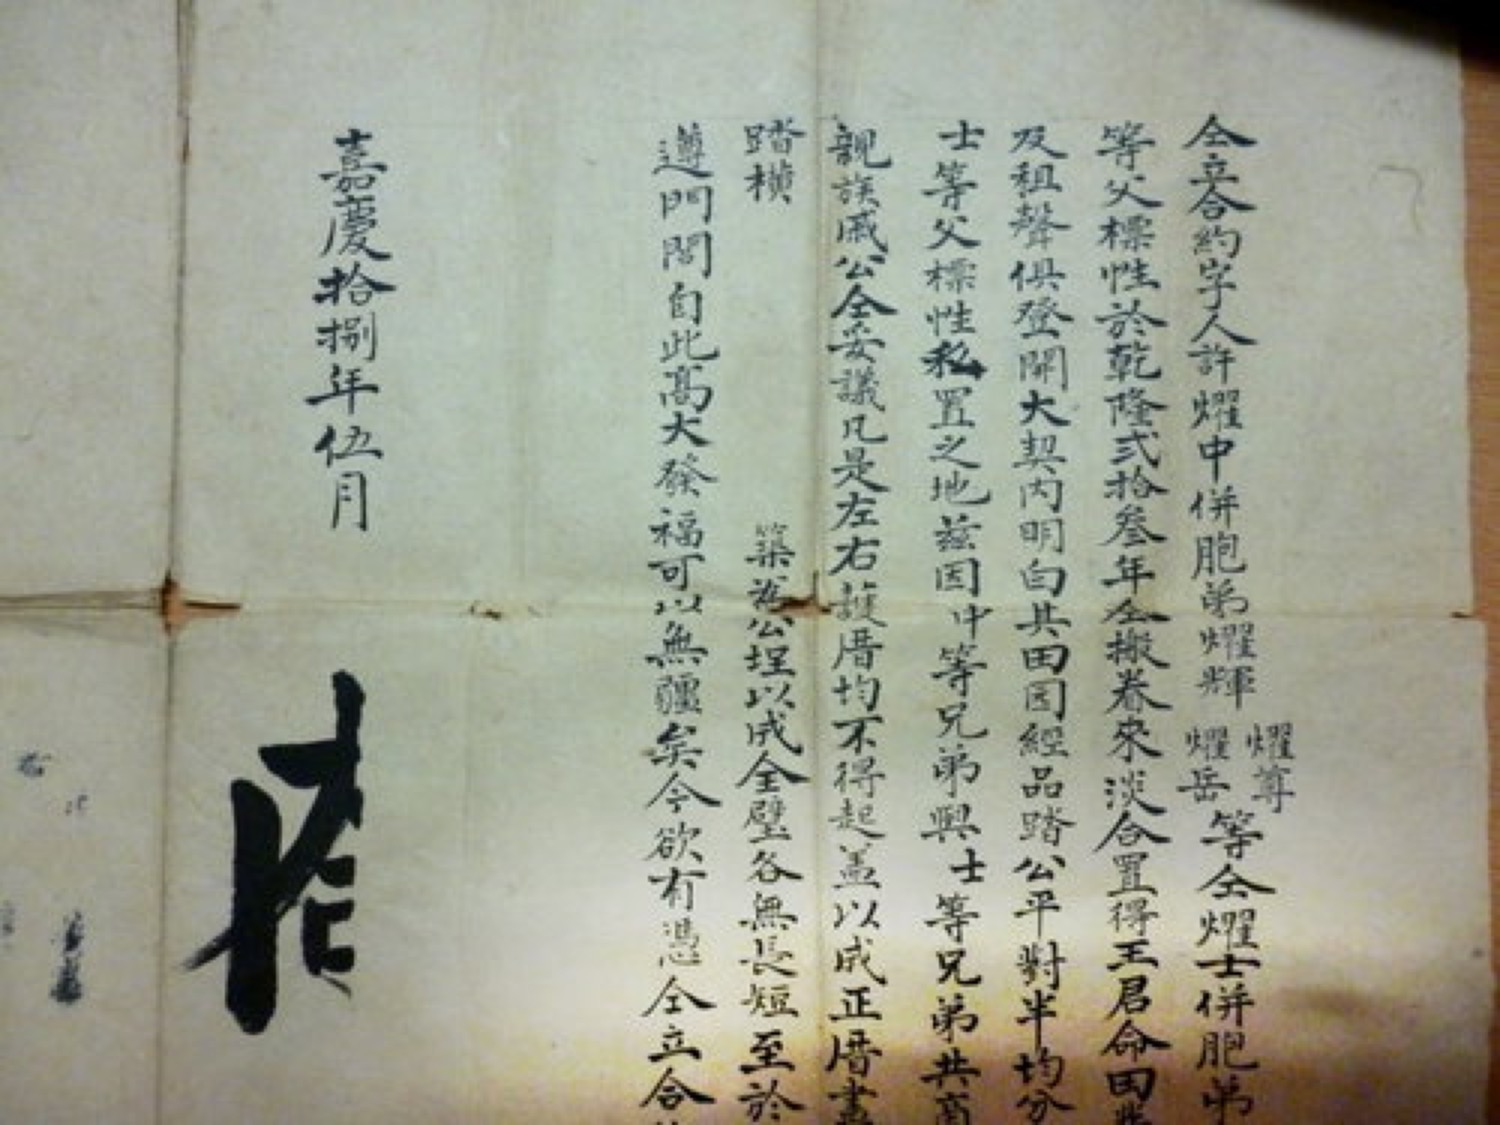 仝立合約字人許燿中併胞弟燿輝燿尊燿岳等仝燿士併胞弟
等父標性於乾隆弍拾叄年仝搬眷來淡合置得王君命田
及祖聲俱登開大契內明白其田园經品踏公平對半均分
士等父標性私置之地茲因中等兄弟與士等兄弟共商
親族戚公仝妥議凡是左右護厝均不得起盖以成正厝
踏橫 築為公埕以成全璧各無長短至於
遵門閭自此高大發福可以無疆矣今欲有憑仝立合
嘉慶拾捌年伍月